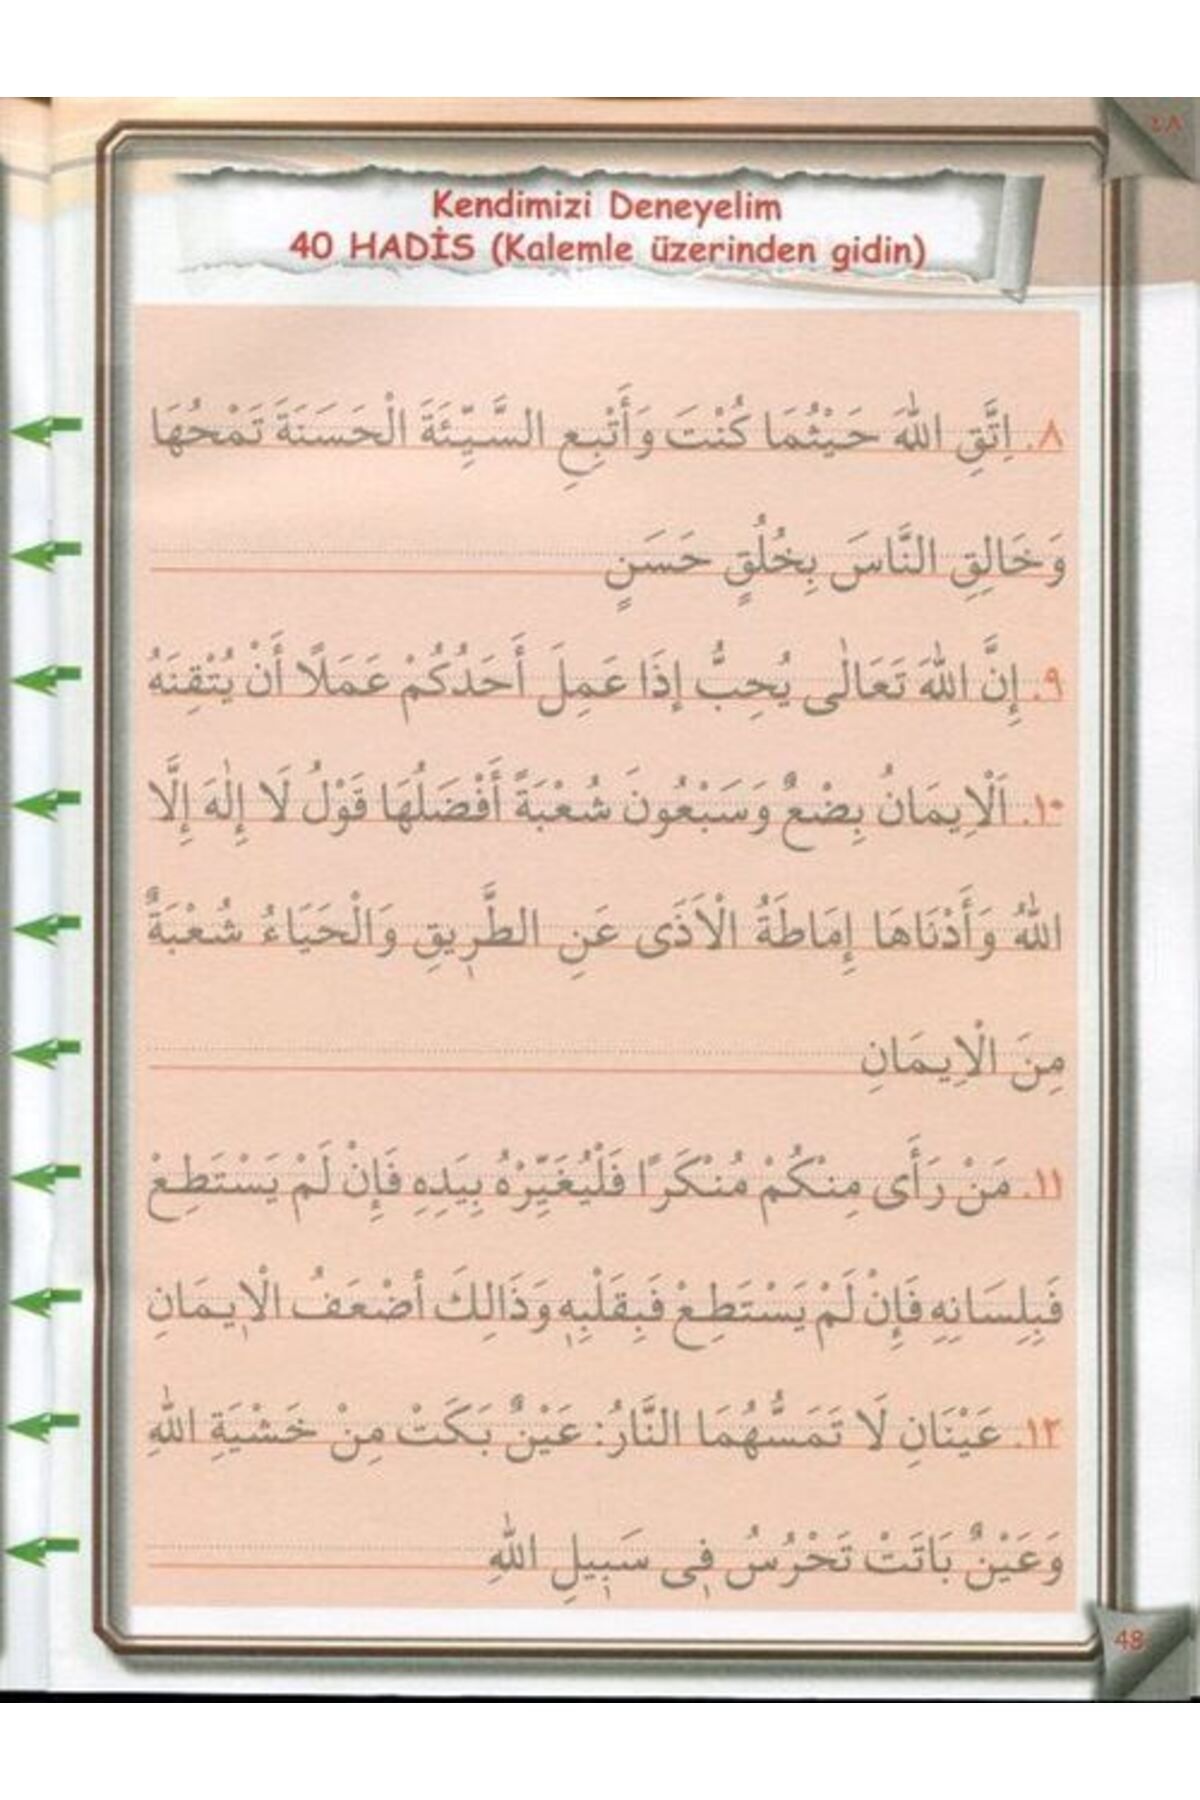 ٤٨
Kendimizi Deneyelim
40 HADİS (Kalemle üzerinden gidin)
٨. اِتَّقِ اللّٰهَ حَيْثُمَا كُنْتَ وَأَتْبِعِ السَّيِّئَةَ الْحَسَنَةَ تَمْحُهَا
وَخَالِقِ النَّاسَ بِخُلُقٍ حَسَنٍ
٩. إِنَّ اللّٰهَ تَعَالٰى يُحِبُّ إِذَا عَمِلَ أَحَدُكُمْ عَمَلًا أَنْ يُتْقِنَهُ
١٠. اَلْاِيمَانُ بِضْعٌ وَسَبْعُونَ شُعْبَةً أَفْضَلُهَا قَوْلُ لَا إِلٰهَ إِلَّا
اللّٰهُ وَأَدْنَاهَا إِمَاطَةُ الْاَذَى عَنِ الطَّرِيقِ وَالْحَيَاءُ شُعْبَةٌ
مِنَ الْاِيمَانِ
١١. مَنْ رَأَى مِنْكُمْ مُنْكَرًا فَلْيُغَيِّرْهُ بِيَدِهِ فَإِنْ لَمْ يَسْتَطِعْ
فَبِلِسَانِهِ فَإِنْ لَمْ يَسْتَطِعْ فَبِقَلْبِهِ وَذَالِكَ أَضْعَفُ الْاِيمَانِ
١٢. عَيْنَانِ لَا تَمَسُّهُمَا النَّارُ: عَيْنٌ بَكَتْ مِنْ خَشْيَةِ اللّٰهِ
وَعَيْنٌ بَاتَتْ تَحْرُسُ فِى سَبِيلِ اللّٰهِ
48